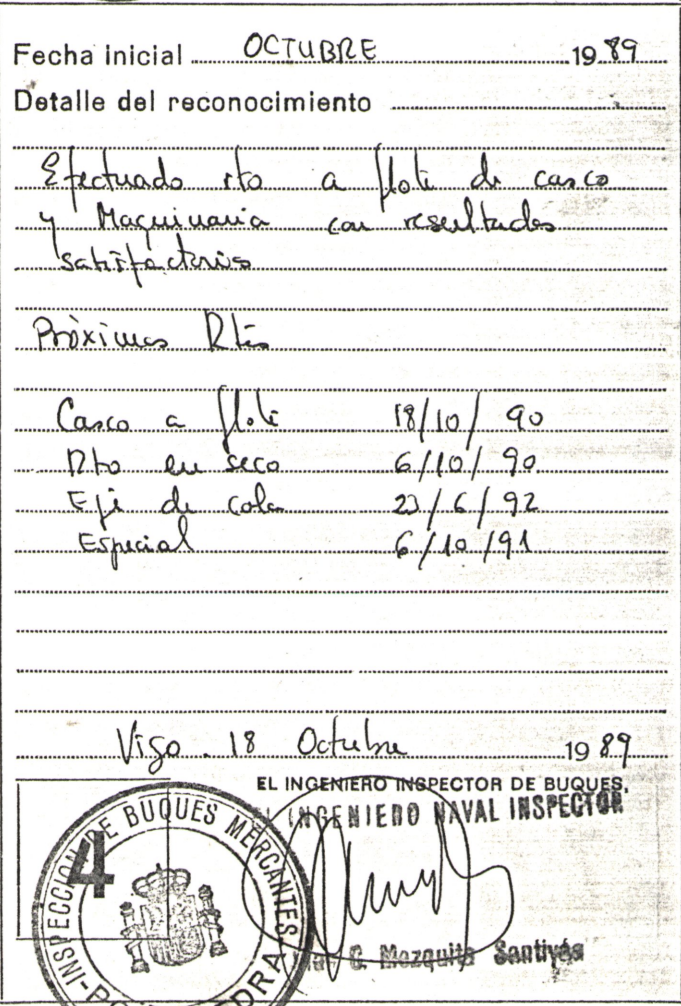 Fecha inicial OCTUBRE 19 89
Detalle del reconocimiento
Efectuado rto a flote de casco
y Maquinaria con resultados
satisfactorios
Próximos Rtos
Casco a flote 18/10/90
Rto en seco 6/10/90
Eje de cola 23/6/92
Especial 6/10/91
Vigo 18 Octubre 19 89
EL INGENIERO INSPECTOR DE BUQUES,
EL INGENIERO NAVAL INSPECTOR
INSPECCION DE BUQUES MERCANTES
4
C. Mezquita Santiyán